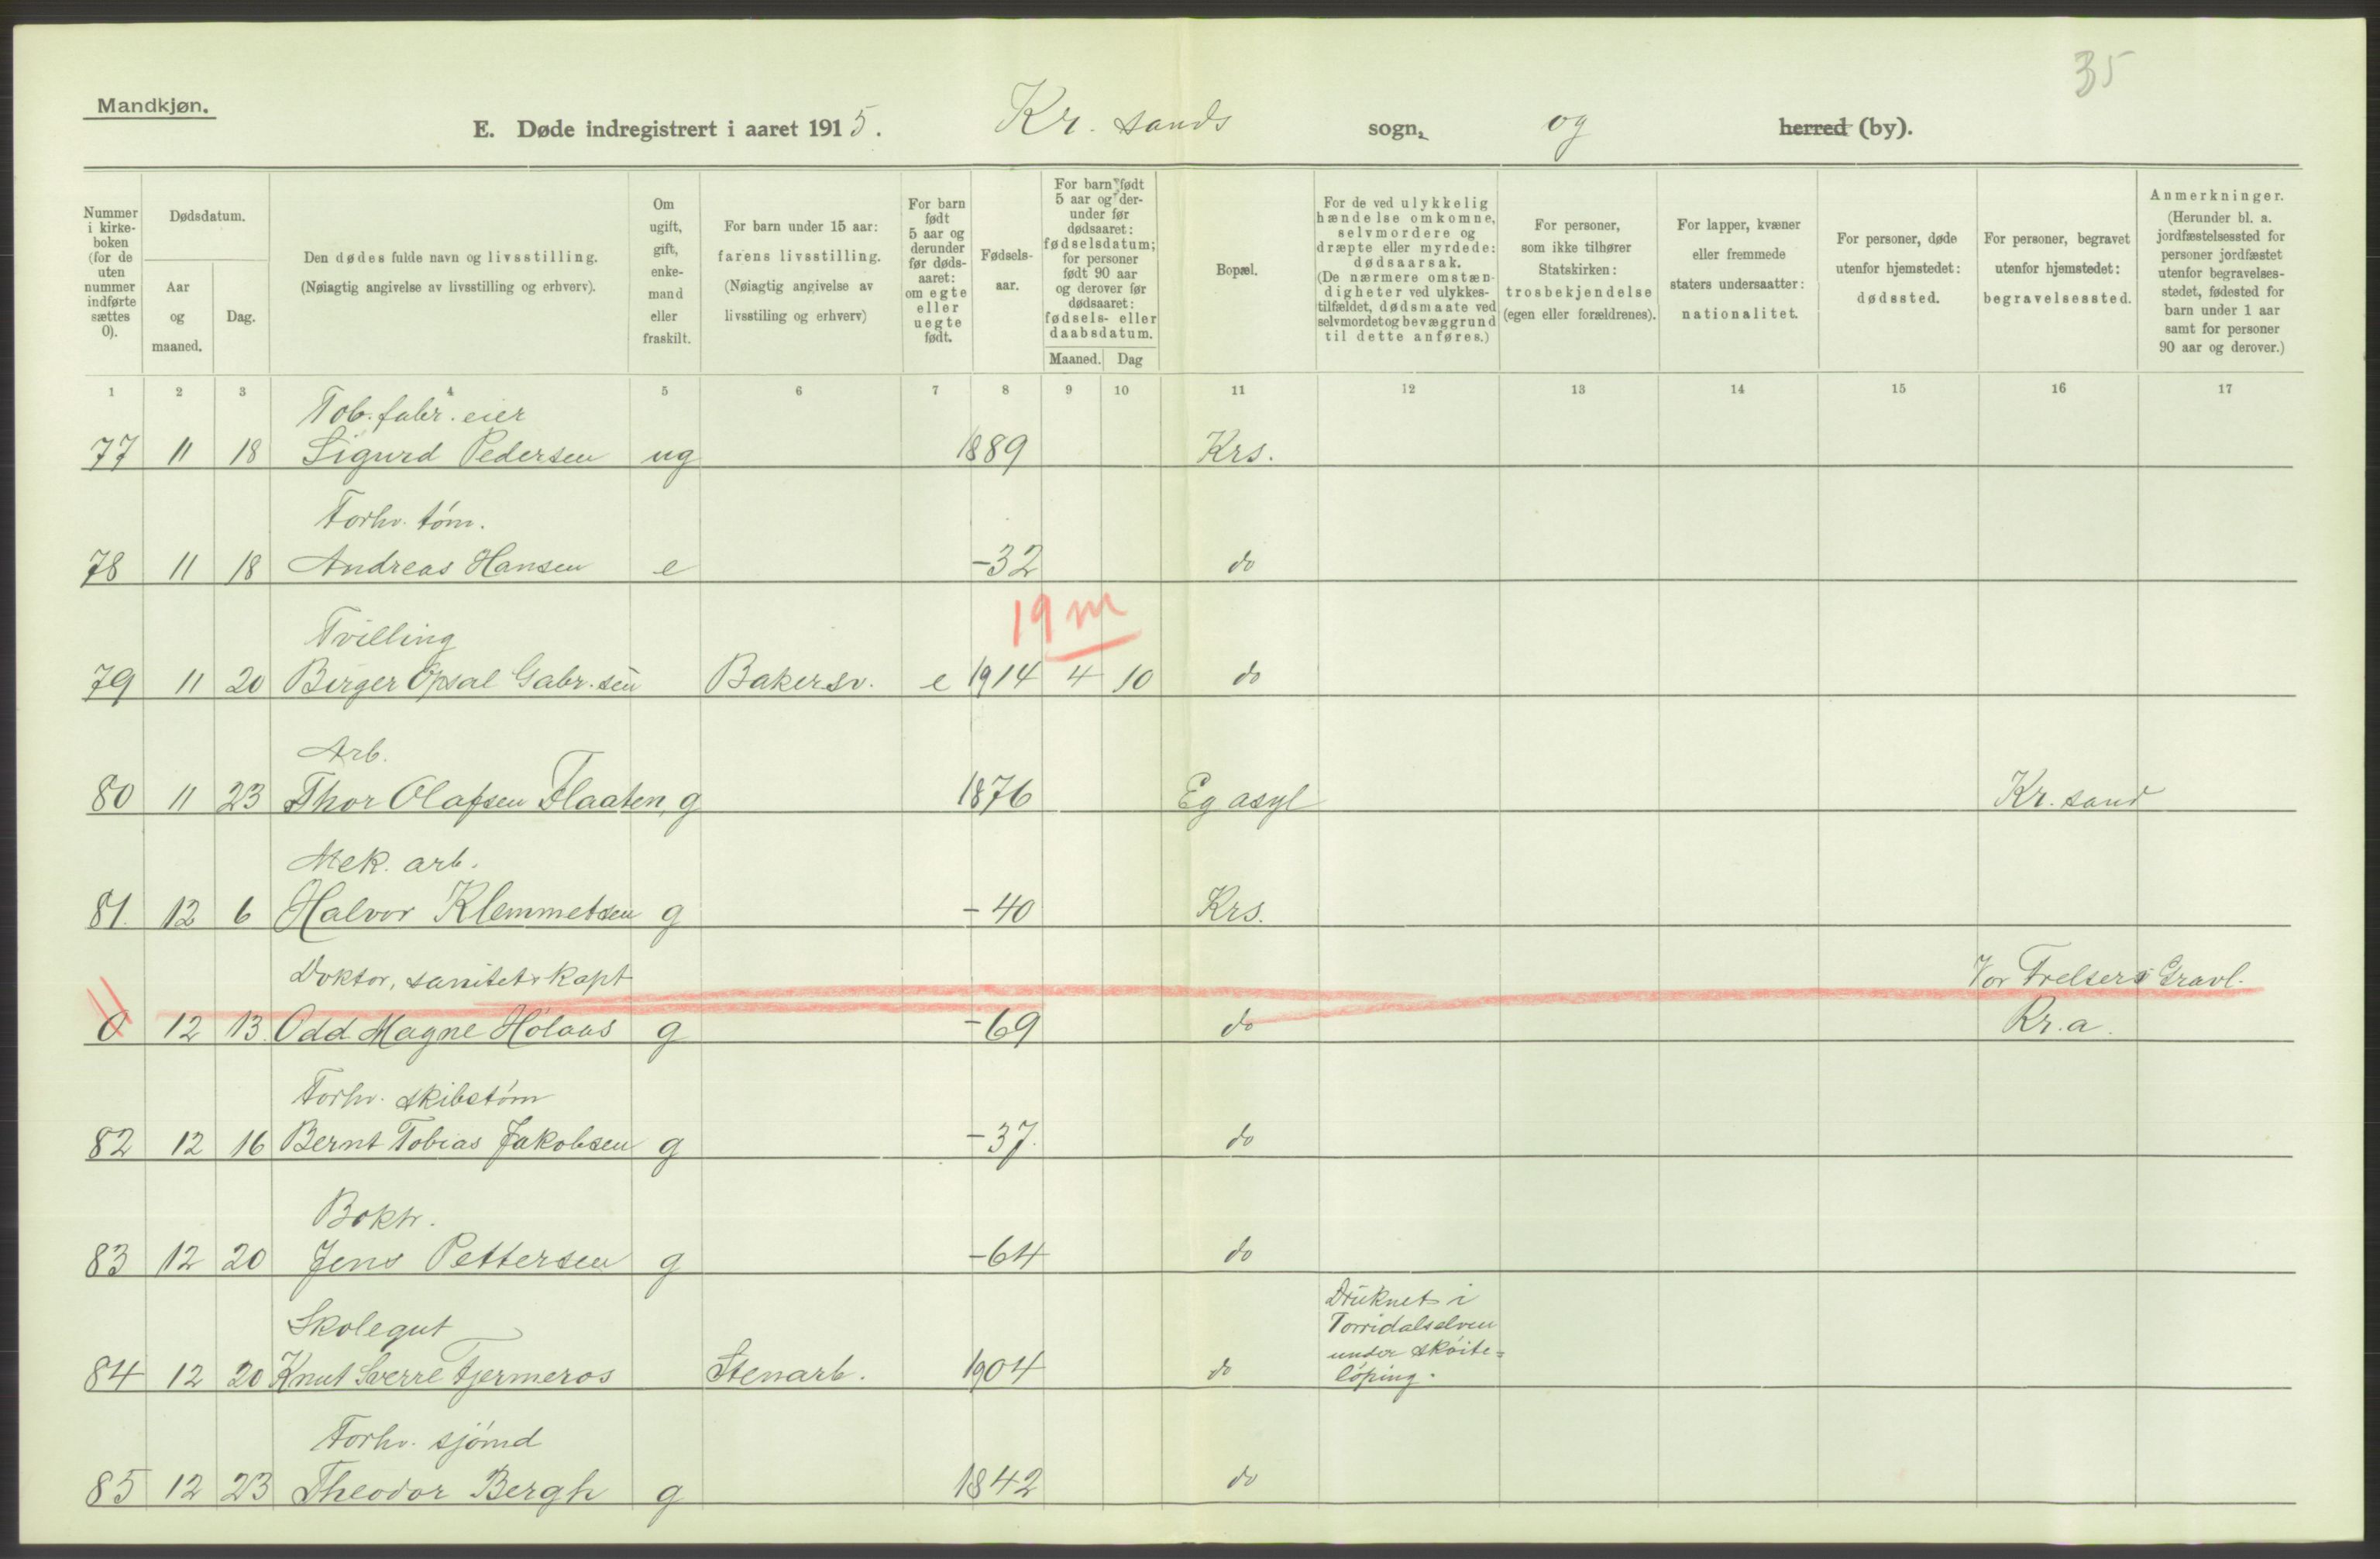 35
Mandkjøn.
E. Døde indregistrert i aaret 1915. Kr. sands sogn, og herred (by).
Nummer i kirke-boken (for de uten nummer indførte sættes 0).
Dødsdatum.
Aar og maaned.
Dag.
Den dødes fulde navn og livsstilling.
(Nøiagtig angivelse av livsstilling og erhverv).
Om ugift, gift, enke-mand eller fraskilt.
For barn under 15 aar: farens livsstilling.
(Nøiagtig angivelse av livsstiling og erhverv)
For barn født 5 aar og derunder før døds-aaret: om egte eller uegte født.
Fødsels-aar.
For barn født 5 aar og der-under før dødsaaret: fødselsdatum; for personer født 90 aar og derover før dødsaaret: fødsels- eller daabsdatum.
Maaned. Dag
Bopæl.
For de ved ulykkelig hændelse omkomne, selvmordere og dræpte eller myrdede: dødsaarsak.
(De nærmere omstæn-digheter ved ulykkes-tilfældet, dødsmaate ved selvmordet og bevæggrund til dette anføres.)
For personer, som ikke tilhører Statskirken: trosbekjendelse (egen eller forældrenes).
For lapper, kvæner eller fremmede staters undersaatter: nationalitet.
For personer, døde utenfor hjemstedet: dødssted.
For personer, begravet utenfor hjemstedet: begravelsessted.
Anmerkninger.
(Herunder bl. a. jordfæstelsessted for personer jordfæstet utenfor begravelses-stedet, fødested for barn under 1 aar samt for personer 90 aar og derover.)
1 2 3 4 5 6 7 8 9 10 11 12 13 14 15 16 17
Tob. fabr. eier
77 11 18 Sigurd Pedersen ug 1889 Krs.
Forhv. tøm.
78 11 18 Andreas Hansen e -32 do
19 m
Tvilling
79 11 20 Birger Opsal Gabr.sen Bakersv. e 1914 4 10 do
Arb.
80 11 23 Thor Olafsen Flaaten, g 1876 Eg asyl Kr. sand
Mek. arb.
81. 12 6 Halvor Klemmetsen g -40 Krs.
Doktor, sanitetskapt Vor Frelsers Gravl.
0 12 13. Odd Magne Hølaas g -69 do Kr.a.
Forhv. skibstøm
82 12 16 Bernt Tobias Jakobsen g -37. do
Boktr.
83 12 20 Jens Pettersen g -64 do
Druknet i
Skolegut Torridalselven
under skøite=
84 12 20 Knut Sverre Tjermeros Stenarb. 1904 do løping.
Forhv. sjømd
85 12 23 Theodor Bergh g 1842 do